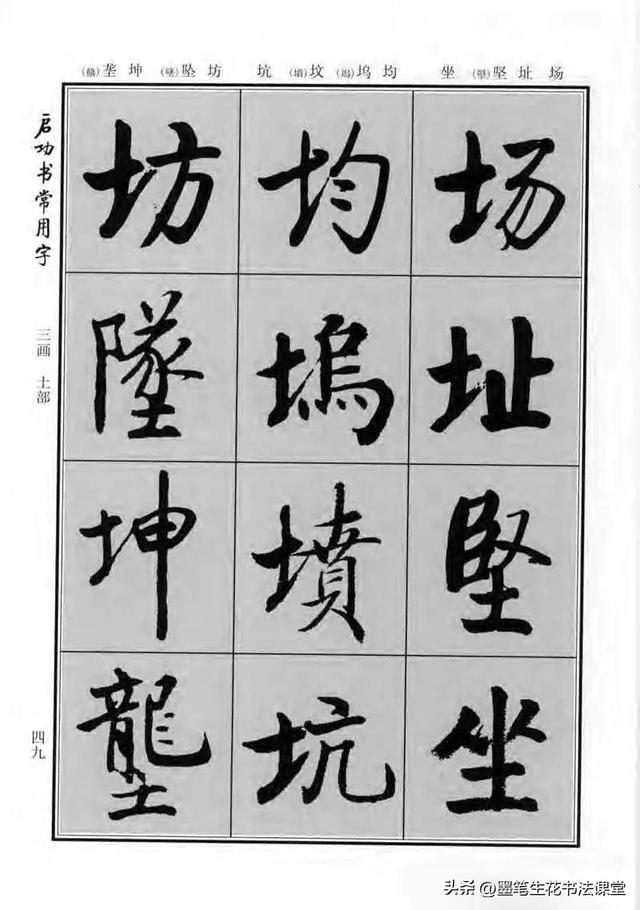 场址坚(堅)坐 均坞(塢)坟(墳)坑 坊坠(墜)坤垄(壟)
场址堅坐
均塢墳坑
坊墜坤壟
启功书常用字
三画 土部
四九
头条 @墨笔生花书法课堂